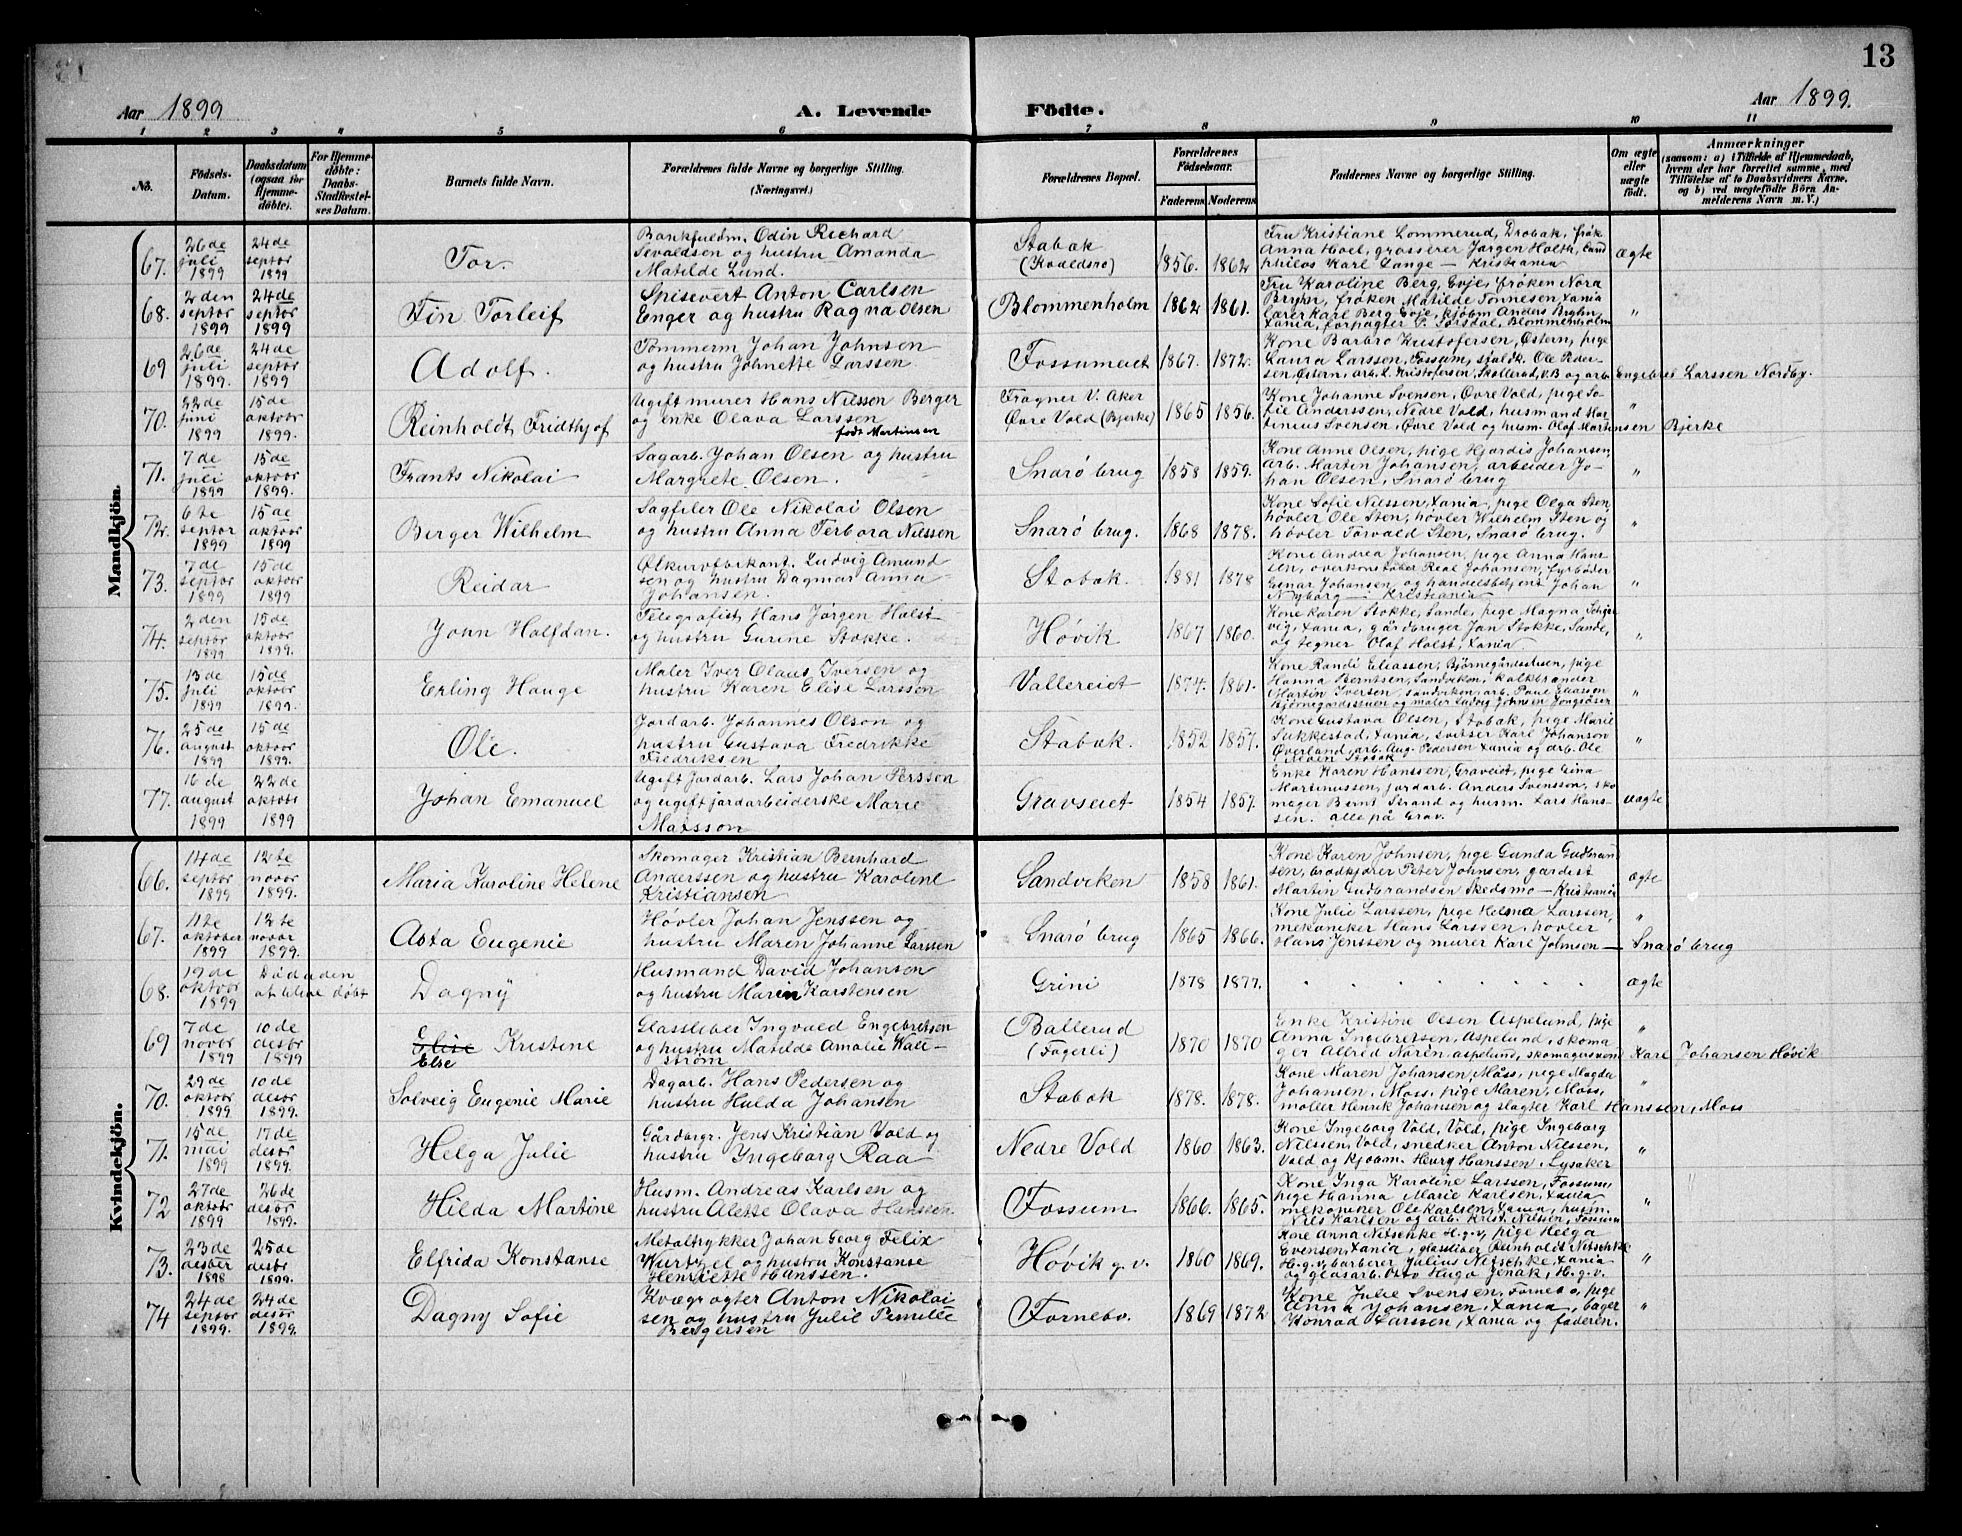 13
Aar 1899
A. Levende Födte.
Aar 1899.
1 2 3 4 5 6 7 8 9 10 11
No.
Födsels-Datum.
Daabsdatum (ogsaa for Hjemme-döbte).
For Hjemme-döbte: Daabs-Stadfæstel-ses Datum.
Barnets fulde Navn.
Forældrenes fulde Navne og borgerlige Stilling.
(Næringsvei.)
Forældrenes Bopæl.
Forældrenes Födselsaar.
Faderens Moderens
Faddernes Navne og borgerlige Stilling.
Om ægte eller uægte födt.
Anmærkninger
(saasom: a) i Tilfælde af Hjemmedaab,
hvem der har forrettet samme, med
Tilföielse af to Daabsvidners Navne,
og b) ved uægtefödte Börn An-
melderens Navn m. V.)
Mandkjön.
67. 26de juli 1899 24de septbr 1899
Tor.
Bankfuldm. Odin Richard
Sevaldsen og hustru Amanda
Matilde Lund.
Stabæk
(Kvaldsro)
1856. 1862
Fru Kristiane Lommerud, Drøbak, frøk
Anna Hoel, grosserer Jørgen Holth, cand
philos Karl Lange — Kristiania
ægte
68. 2den septbr 1899 24de septbr 1899
Fin Torleif
Spisevert Anton Carlsen
Enger og hustru Ragna Olsen
Blommenholm
1862 1861.
Fru Karoline Berg, Evje, frøken Nora
Bryhn, frøken Matilde Tønnesen, Xania
lærer Karl Berg Evje, kjøbm Anders Bryhn,
Xania, forpagter P. Sørsdal, Blommenholm
"
69 26de juli 1899. 24de septbr 1899
Adolf.
Tømmerm Johan Johnsen
og hustru Johnette Larssen
Fossumeiet
1867. 1872.
Kone Barbro Kustofersen, Østern, pige
Laura Larssen, Fossum, staldk. Ole Peder-
sen, Østern, arb. L. Kristofersen, Skollerud, V.B og arb. Engebret Larssen Nordby.
70. 22de juni 1899 15de oktobr 1899.
Reinholdt Fridthjof
Ugift murer Hans Nilsson Berger
og enke Olava Larssen
født Martinsen
Fragner V. Aker
Øvre Vold (Bjerke)
1865 1856.
Kone Johanne Svensen, Øvre Vold, pige So-
fie Anderssen, Nedre Vold, husmand Mar-
tinius Svensen, Øvre Vold og husm. Olaf Martensen Bjerke
"
71. 7de juli 1899 15de oktobr 1899.
Frants Nikolai
Sagarb. Johan Olsen og hustru
Margrete Olsen.
Snarø brug
1858 1859.
Kone Anne Olsen, pige Hjørdis Johansen,
arb. Martin Johansen, arbeider Jo-
han Olsen, Snarø brug
"
72. 6te septbr 1899 15de oktobr 1899
Berger Wilhelm
Sagfiler Ole Nikolai Olsen
og hustru Anna Terbora Nilssen
Snarø brug.
1868 1878.
Kone Sofie Nilssen, Xania, pige Olga Sten,
høvler Ole Sten, høvler Wilhelm Sten og
høvler Torvald Sten, Snarø brug.
"
73. 7de septbr 1899 15de oktobr 1899
Reidar
Ølkurvfabrikant. Ludvig Amund
sen og hustru Dagmar Anna
Johansen.
Stabæk.
1881 1878
Kone Andrea Johansen, pige Anna Han-
sen, overkonstabel Real Johansen, fyrbøder
Einar Johansen og handelsbetjent Johan
Nyborg — Kristiania
"
74. 2den septbr 1899 15de oktobr 1899.
John Halfdan.
Telegrafist, Hans Jørgen Holst
og hustru Gurine Stokke.
Høvik
1867 1860.
Kone Karen Stokke, Sande, pige Magna
vig, Xania, gårdbruger Jan Stokke, Sande,
og tegner Olaf Holst, Xania.
"
75. 13de juli 1899 15de oktobr 1899
Erling Hauge
Maler Iver Olaus Iversen og
hustru Karen Elise Larssen
Vallereiet
1874. 1861.
Kone Randi Eliassen, Bjørnegårdsstuen, pige
Hanna Berntsen, Sandviken, kalkbrænder
Martin Iversen, Sandviken, arb. Paul Eliassen
Bjørnegårdsstuen og maler Ludvig Johnsen
"
76. 25de august 1899 15de oktobr 1899
Ole.
Jordarb. Johannes Olson og
hustru Gustava Fredrikke
Fredriksen
Stabæk.
1852 1857.
Kone Gustava Olsen, Stabæk, pige Marie
Sukkestad, Xania, svitser Karl Johanson
Øverland, arb. Aug. Pedersen Xania og arb. Ole
Stabæk
"
77. 16de august 1899 22de oktobr 1899
Johan Emanuel
Ugift Jordarb. Lars Johan Perssen
og ugift jordarbeiderske Marie
Matsson
Gravseiet
1854 1857.
Enke Karen Hanssen, Graveiet, pige Gina
Martinussen, jordarb. Anders Svensson, sko
mager Bernt Strand og husm. Lars Hans-
sen. alle på Grav.
uægte
Kvindekjön.
66. 14de septbr 1899 12te novbr 1899.
Maria Karoline Helene
Skomager Kristian Bernhard
Anderssen og hustru Karoline
Kristiansen
Sandviken
1858 1861.
Kone Karen Johnsen, pige Gunda Gudbran
sen, brødkjører Peter Johnsen, gardist
Martin Gudbrandsen Skedsmo — Kristiania
ægte
67. 11te oktober 1899 12te novbr 1899.
Asta Eugenie
Høvler Johan Jenssen og
hustru Maren Johanne Larssen
Snarø brug
1865 1866.
Kone Julie Larssen, pige Helma Larssen,
mekaniker Hans Larssen, høvler
Hans Jenssen og murer Karl Johnsen — Snarø brug
"
68. 19de oktobr 1899 Død uden at blive døbt
Dagny
Husmand David Johansen
og hustru Maren Karstensen
Grini
1878 1877.
ægte
69 7de novbr 1899 10de desbr 1899
Elise Kristine
Else
Glassliber Ingvald Engebretsen
og hustru Matilde Amalie Wall-
strøm
Ballerud
(Fagerli)
1870 1870
Enke Kristine Olsen Aspelund, pige
Anna Ingebretsen, Aspelund, skoma
ger Alfred Norén, Aspelund, skomagersvend Karl Johansen Høvik
"
70. 29de oktobr 1899 10de desbr 1899.
Solveig Eugenie Marie
Dagarb. Hans Pedersen og
hustru Hulda Johansen
Stabæk
1878. 1878.
Kone Maren Johansen, Moss, pige Magda
Johansen, Moss, pige Maren, Moss,
møller Henrik Johansen og slagter Karl Hanssen, Moss
"
71. 15de mai 1899 17de desbr 1899.
Helga Julie
Gårdbrgr. Jens Kristian Vold og
hustru Ingeborg Raa
Nedre Vold
1860 1863.
Kone Ingeborg Vold, Vold, pige Ingeborg
Nilssen, Vold, snedker Anton Nilssen,
Vold og kjøbm. Henry Hanssen, Lysaker
"
72 27de oktobr 1899 26de desbr 1899.
Hilda Martine
Husm. Andreas Karlsen og
hustru Alette Olava Hanssen.
Fossum
1866. 1865.
Kone Inga Karoline Larssen, Fossum,
pige Hanna Marie Karlsen, Xania
mekaniker Ole Karlsen, Xania, husm.
Nils Karlsen og arb. Krist. Nilssen, Fossum
"
73. 23de desber 1898 25de desbr 1899.
Elfrida Konstanse
Metaltrykker Johan Georg Felix
Wurtzel og hustru Konstanse
Henriette Hanssen.
Høvik g.v.
1860 1869.
Kone Anna Nitschke H.g.v, pige Helga
Evensen, Xania, glassliber Reinholdt Nitschke
H.g.v, barberer Julius Nitschke, Xania
og glasarb. Otto Hugo Jenak, H.g.v.
"
74 24de septbr 1899. 24de desbr 1899.
Dagny Sofie
Kvægrøgter Anton Nikolai
sen og hustru Julie Pernille
Bergersen
Fornebo.
1869 1872
Kone Julie Svensen, Fornebo, pige
Anna Johansen, Xania, bager
Konrad Larssen, Xania og faderen.
"